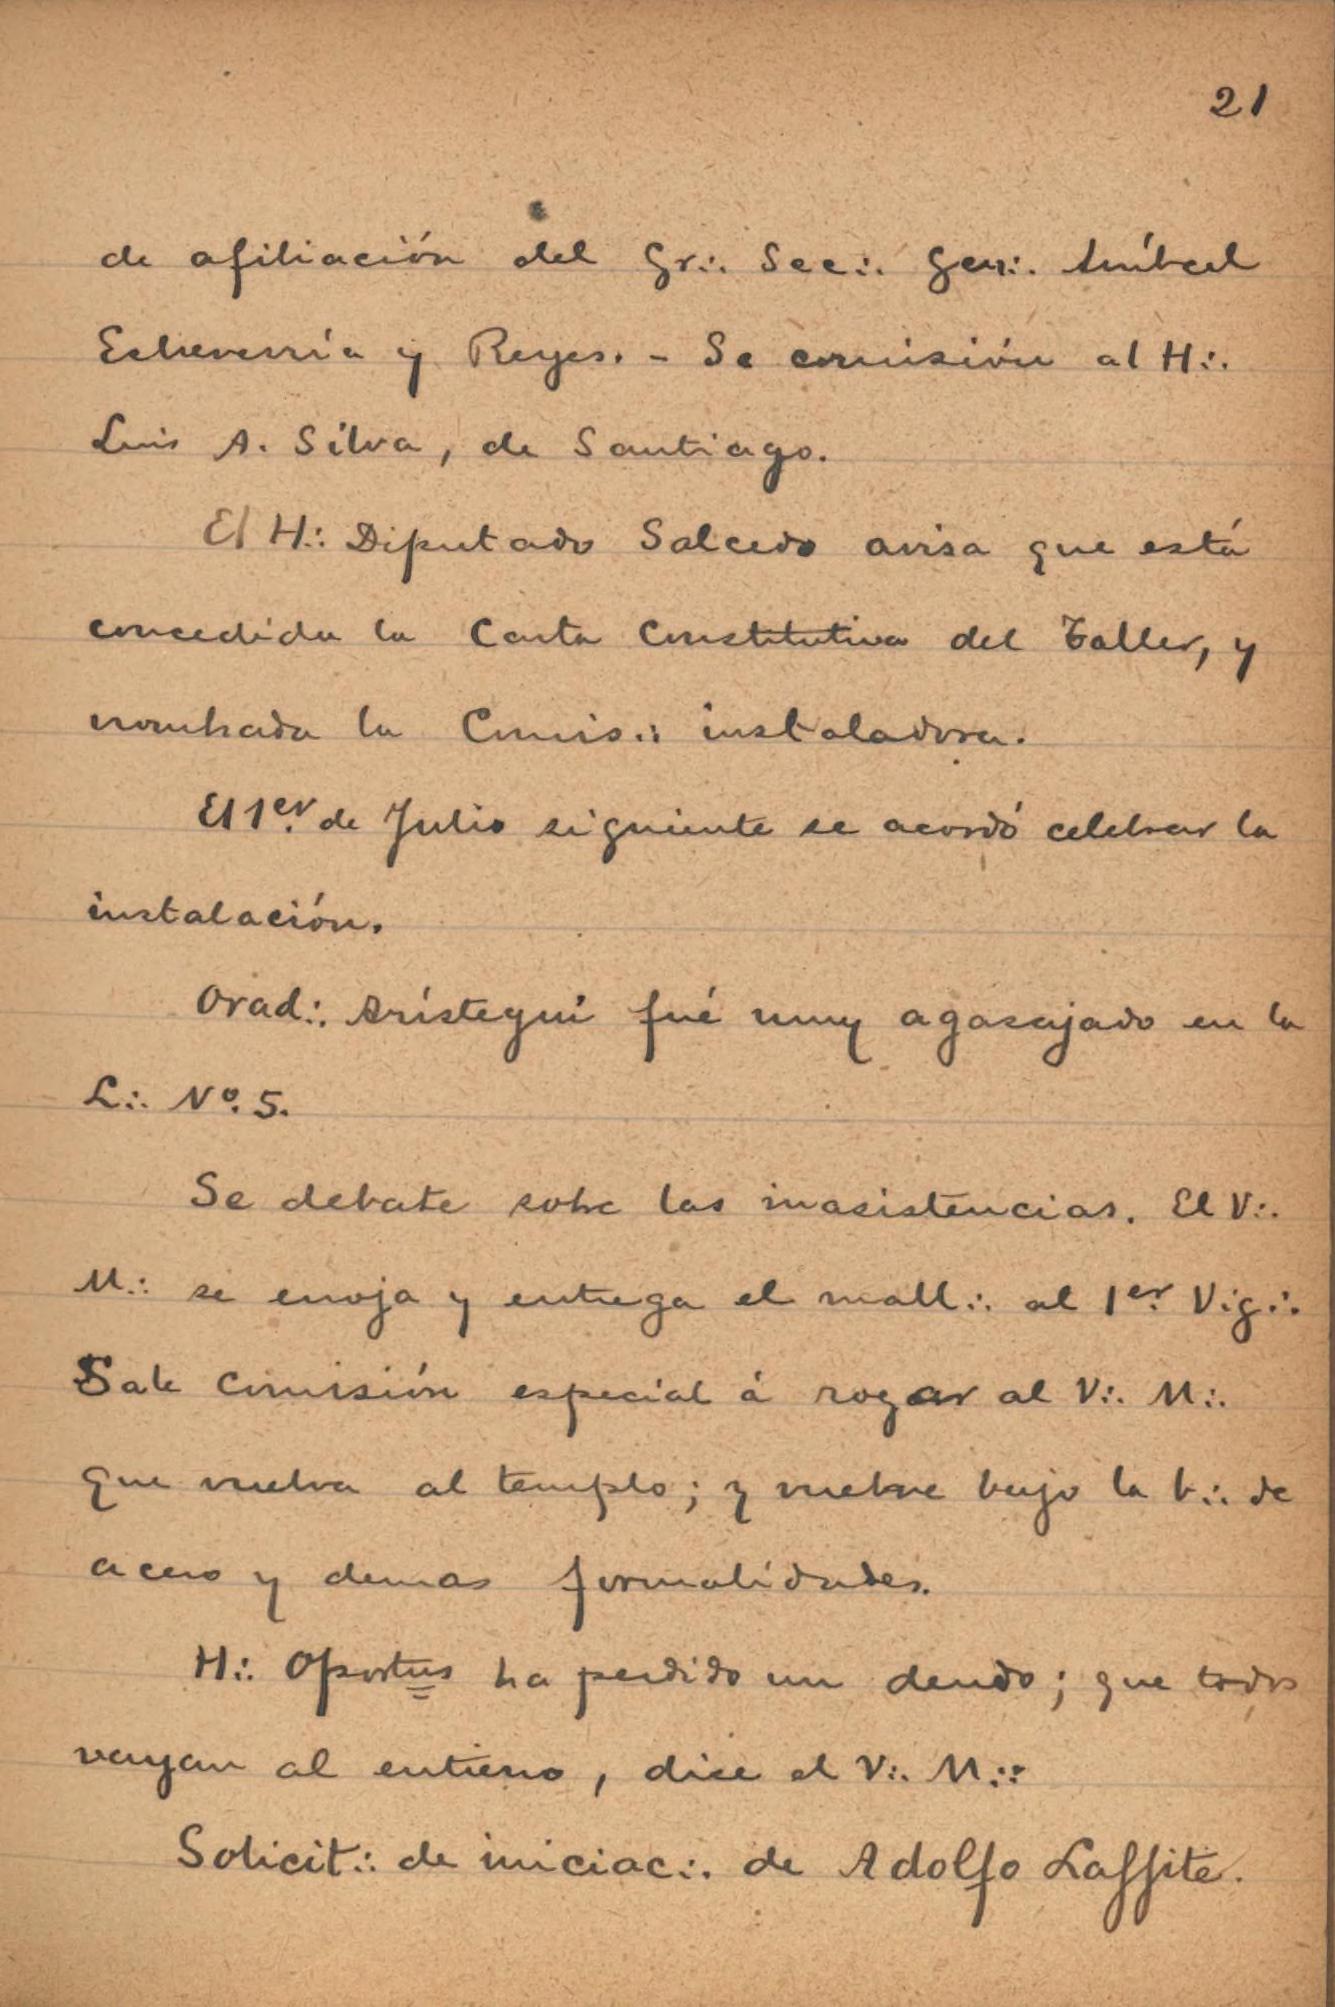 21
de afiliación del Gr∴ Sec∴ Gen∴ Aníbal
Echeverría y Reyes. - Se comisión al H∴
Luis A. Silva, de Santiago.
El H∴ Diputado Salcedo avisa que está
concedida la Carta Constitutiva del Taller, y
nombrada la Comis∴ instaladora.
El 1er. de Julio siguiente se acordó celebrar la
instalación.
Orad∴ Arístegui fué muy agasajado en la
L∴ Nº. 5.
Se debate sobre las inasistencias. El V∴
M∴ se enoja y entrega el mall∴ al 1er. Vig∴
Sale comisión especial á rogar al V∴ M∴
que vuelva al templo; y vuelve bajo la b∴ de
acero y demas formalidades.
H∴ Oportus ha perdido un deudo; que todos
vayan al entierro, dice el V∴ M∴
Solicit∴ de iniciac∴ de Adolfo Laffite.